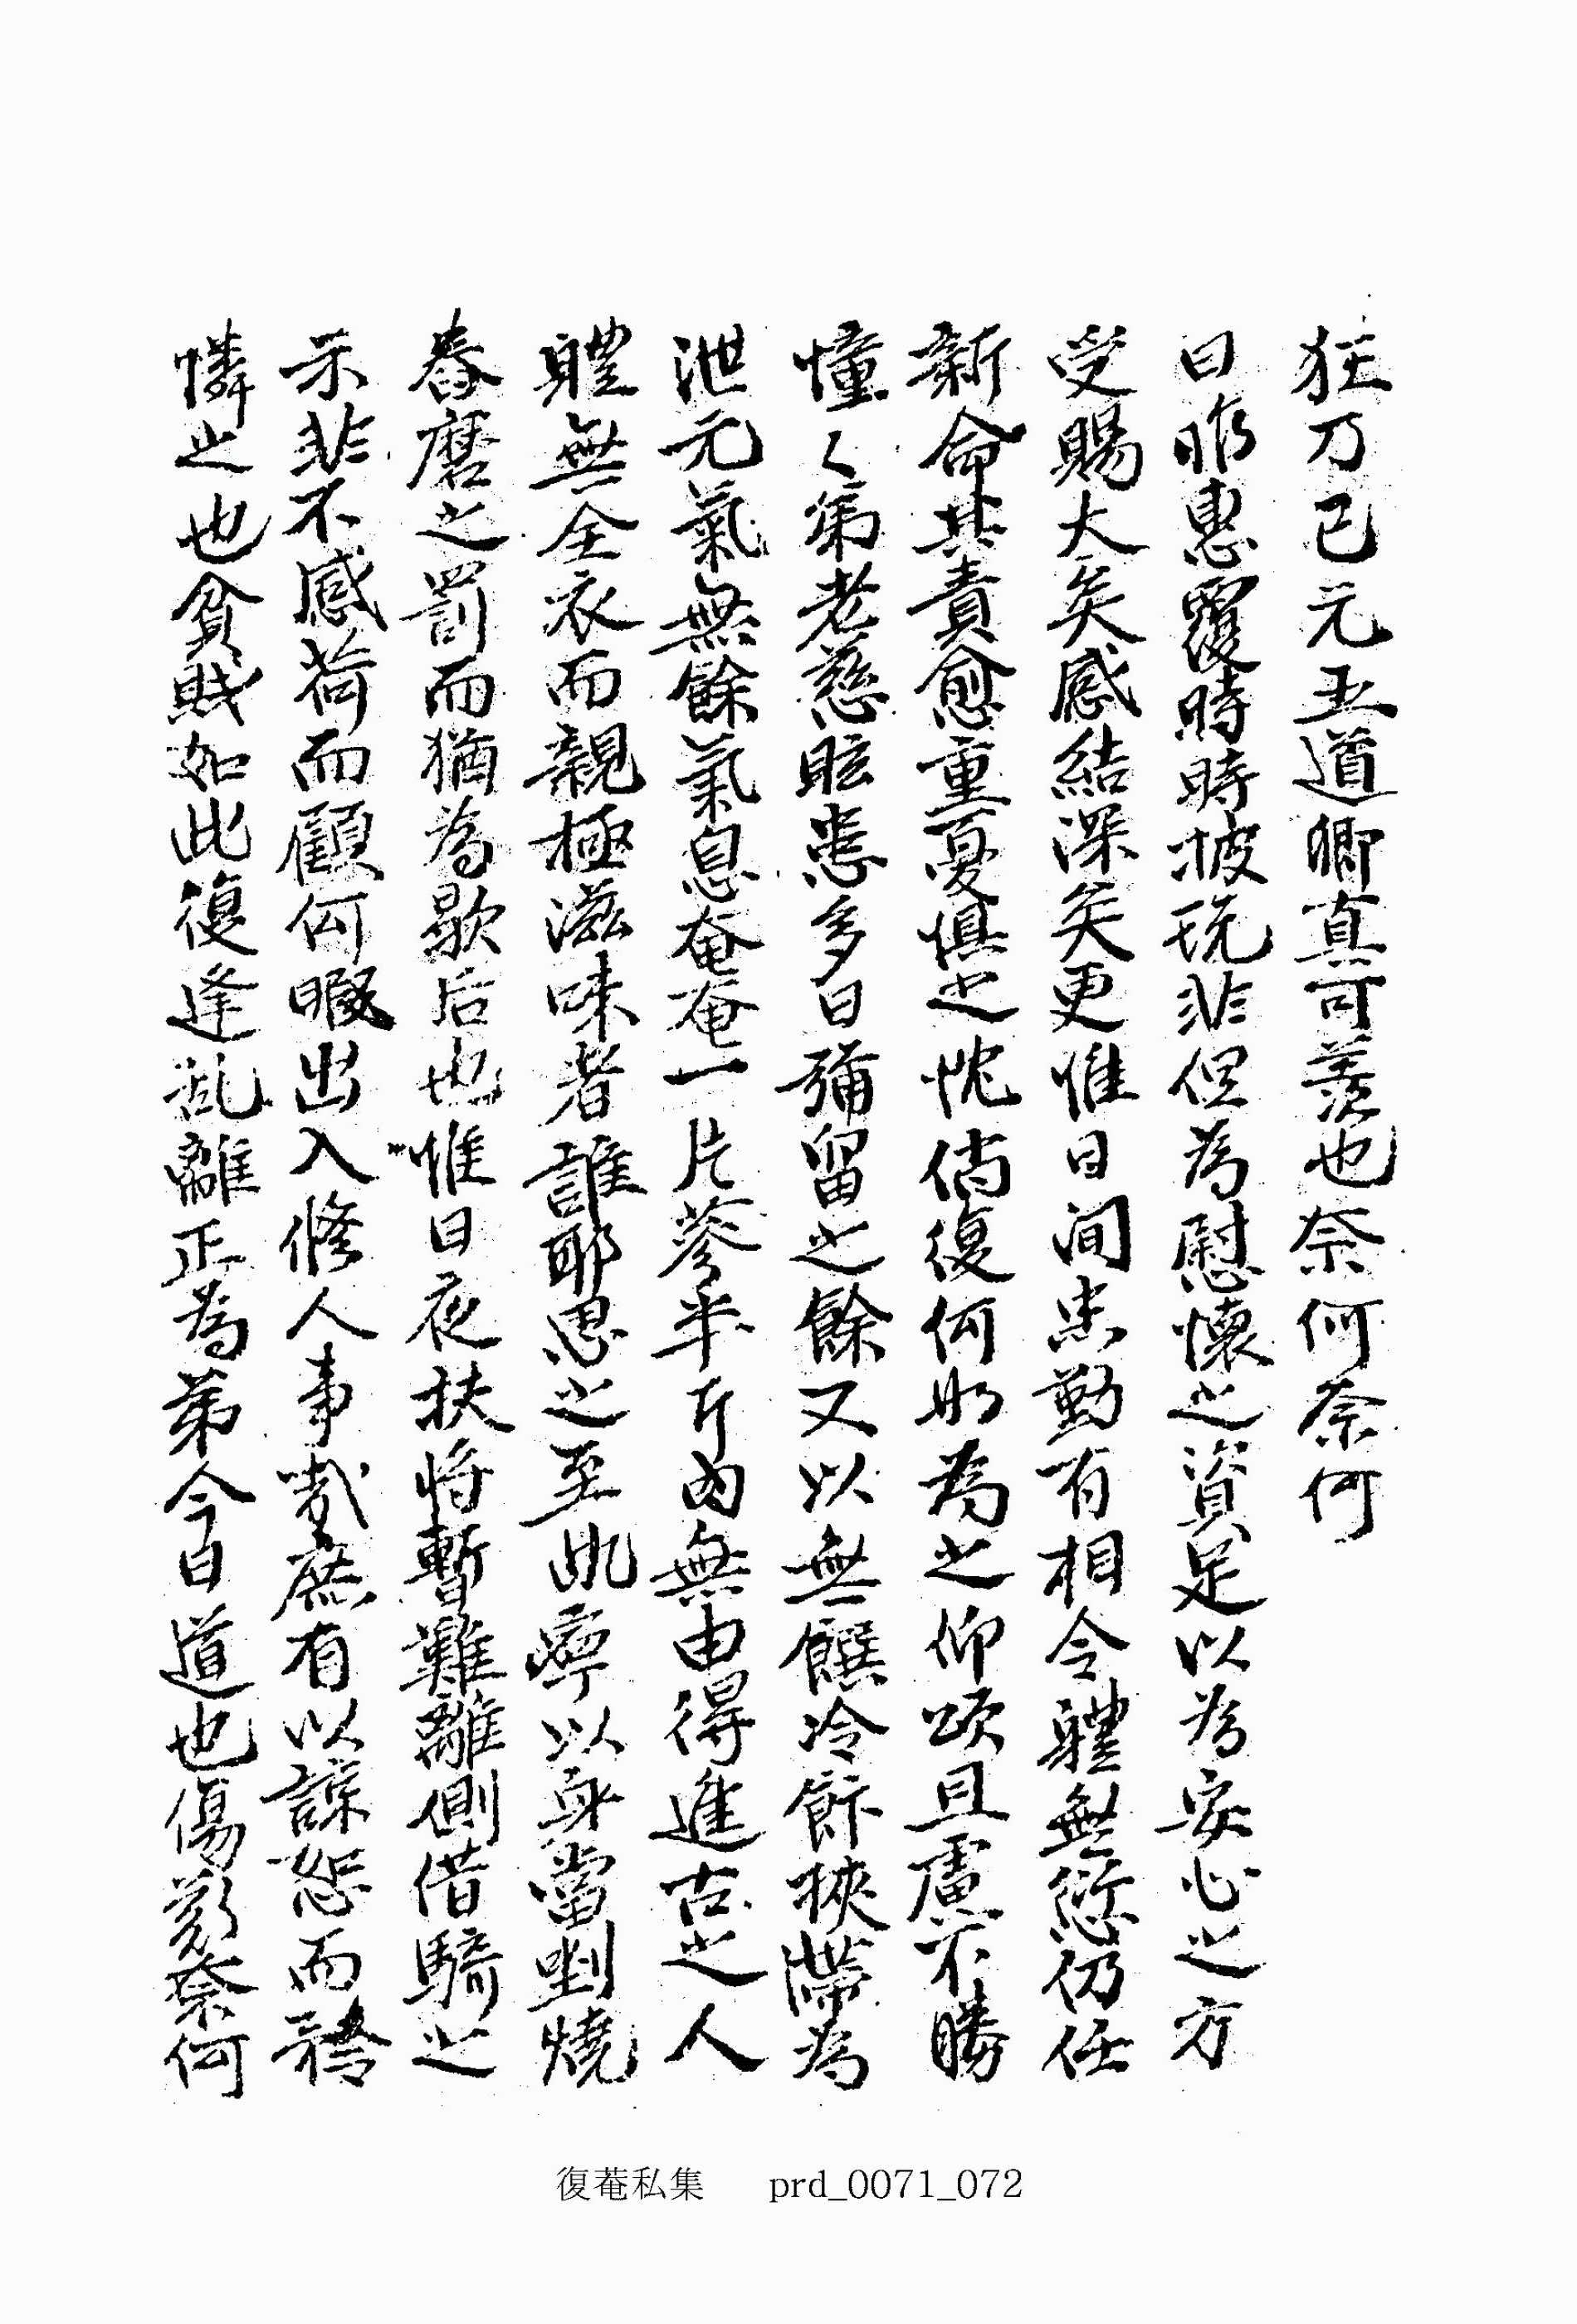 狂乃已元五道卿真可羨也奈何奈何
日昨惠覆時時披玩非但為慰懷之資足以為安心之方
受賜大矣感結深矣更惟日間忠勤有相令軆無愆仍任
新命其責愈重憂惧之忱倘復何如為之仰頌且慮不勝
憧〻弟老慈眩患多日彌留之餘又以無饌冷餠挾滯為
泄元氣無餘氣息奄奄一片蔘半斤肉無由得進古之人
軆無全衣而親極滋味者誰耶思之至此寧以身當剉燒
舂磨之罰而猶為歇后也惟日夜扶將暫難離側借騎之
示非不感荷而顧何暇出入修人事哉庶有以諒恕而矜
憐之也貧賤如此復逢乱離正為弟今日道也傷歎奈何
復菴私集 prd_0071_072